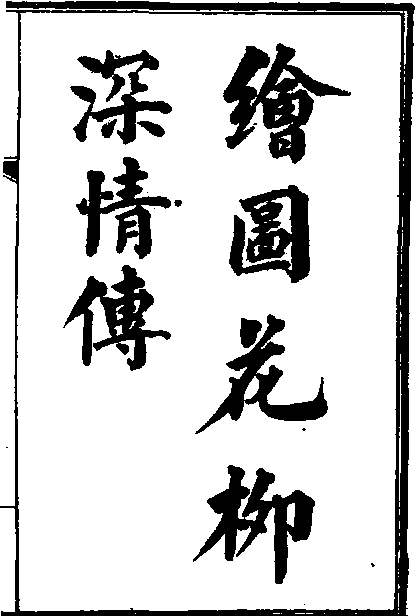 繪圖花柳
深情傳